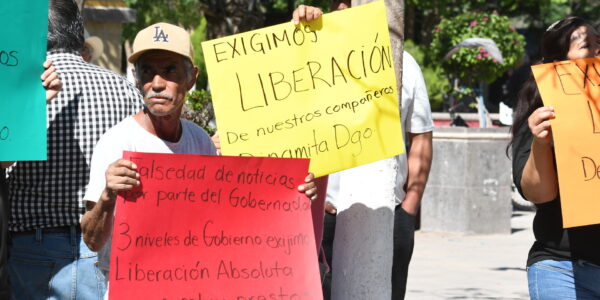 LA
EXIGIMOS
LIBERACIÓN
De nuestros compañeros
Dinamita Dgo.
Falsedad de noticias
por parte del Gobernador
3 niveles de Gobierno exijimo
Liberación Absoluta
EXI
De